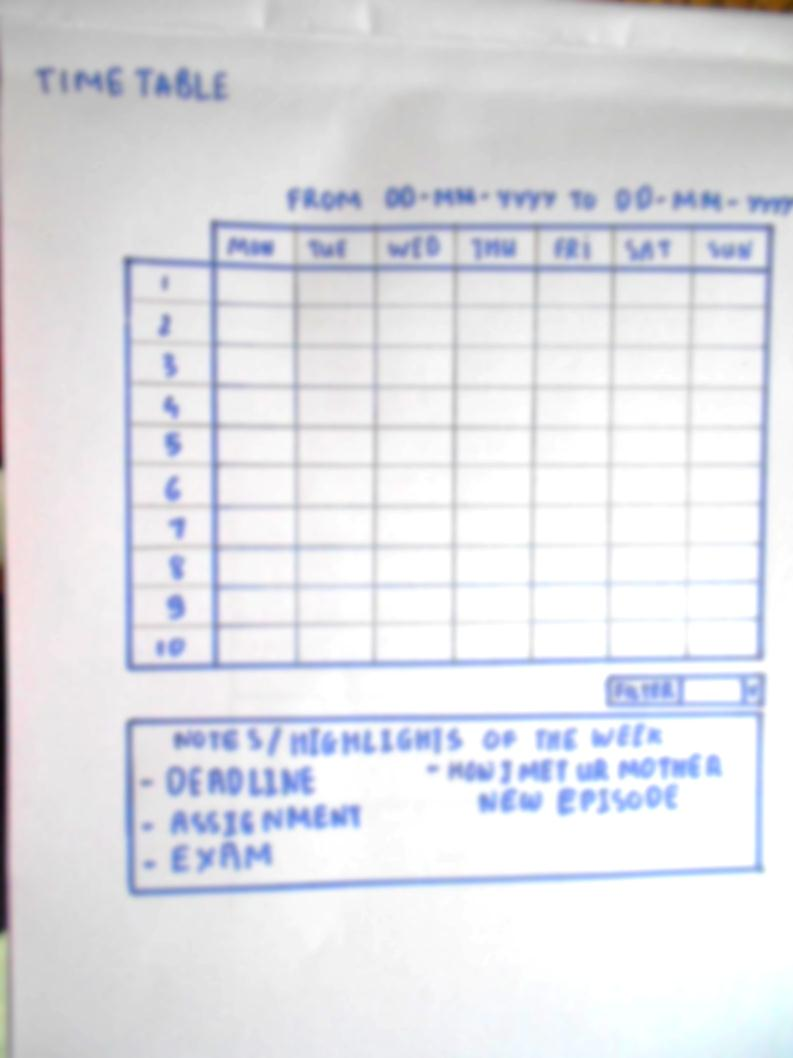 TIME TABLE
FROM DD-MM-YYYY TO DD-MM-YYYY
MON TUE WED THU FRI SAT SUN
1
2
3
4
5
6
7
8
9
10
FILTER
NOTES/HIGHLIGHTS OF THE WEEK
- DEADLINE - HOW I MET UR MOTHER
NEW EPISODE
- ASSIGNMENT
- EXAM